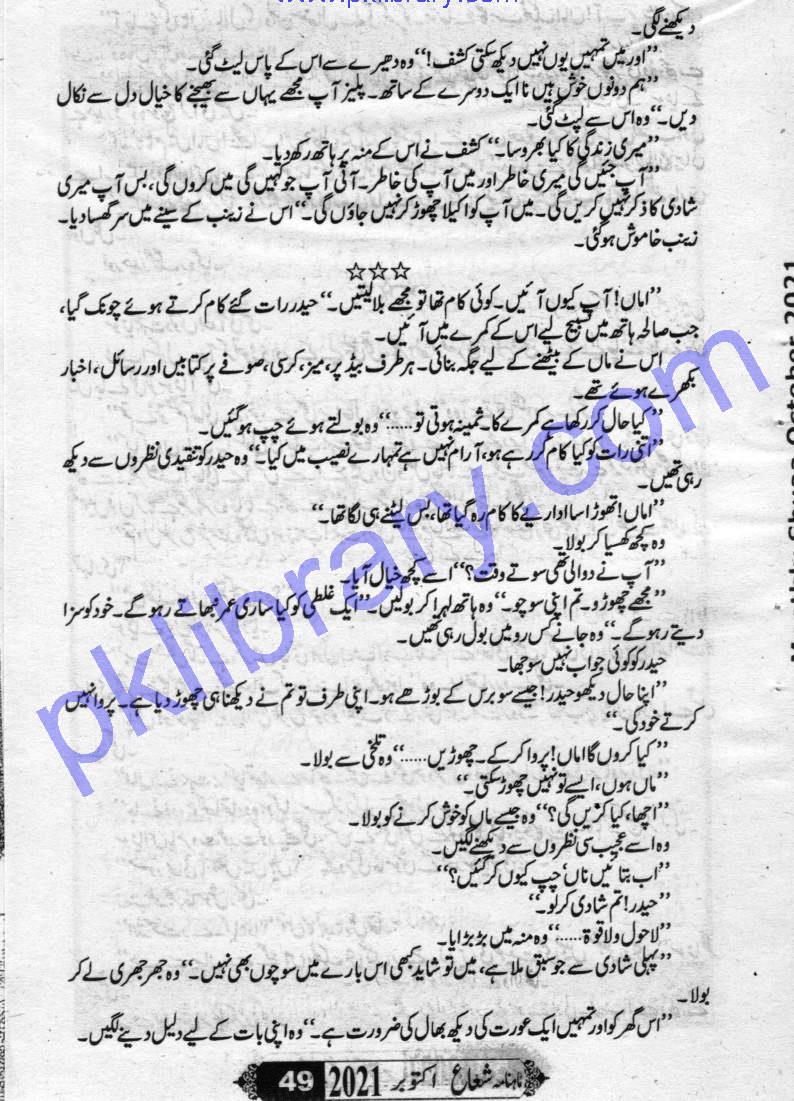 www.pklibrary.com
دیکھنے لگی۔
”اور میں تمہیں یوں نہیں دیکھ سکتی کشف!“ وہ دھیرے سے اس کے پاس لیٹ گئی۔
”ہم دونوں خوش ہیں نا ایک دوسرے کے ساتھ۔ پلیز آپ مجھے یہاں سے بھیجنے کا خیال دل سے نکال
دیں۔“ وہ اس سے لپٹ گئی۔
”میری زندگی کا کیا بھروسا۔“ کشف نے اس کے منہ پر ہاتھ رکھ دیا۔
”آپ جئیں گی میری خاطر اور میں آپ کی خاطر۔ آئی آپ جو کہیں گی میں کروں گی، بس آپ میری
شادی کا ذکر نہیں کریں گی۔ میں آپ کو اکیلا چھوڑ کر نہیں جاؤں گی۔“ اس نے زینب کے سینے میں سر گھسا دیا۔
زینب خاموش ہو گئی۔
☆☆☆
”اماں! آپ کیوں آئیں۔ کوئی کام تھا تو مجھے بلا لیتیں۔“ حیدر رات گئے کام کرتے ہوئے چونک گیا،
جب صالحہ ہاتھ میں تسبیح لیے اس کے کمرے میں آئیں۔
اس نے ماں کے بیٹھنے کے لیے جگہ بنائی۔ ہر طرف بیڈ پر، میز، کرسی، صوفے پر کتابیں اور رسائل، اخبار
بکھرے ہوئے تھے۔
”کیا حال کر رکھا ہے کمرے کا۔ ثمینہ ہوتی تو......“ وہ بولتے ہوئے چپ ہو گئیں۔
”اتنی رات کو کیا کام کر رہے ہو، آرام نہیں ہے تمہارے نصیب میں کیا۔“ وہ حیدر کو تنقیدی نظروں سے دیکھ
رہی تھیں۔
”اماں! تھوڑا سا اداریے کا کام رہ گیا تھا، بس لیٹنے ہی لگا تھا۔“
وہ کچھ کھسیا کر بولا۔
”آپ نے دوا لی تھی سوتے وقت؟“ اسے کچھ خیال آیا۔
”مجھے چھوڑو۔ تم اپنی سوچو۔“ وہ ہاتھ لہرا کر بولیں۔ ”ایک غلطی کو کیا ساری عمر نبھاتے رہو گے۔ خود کو سزا
دیتے رہو گے۔“ وہ جانے کس رو میں بول رہی تھیں۔
حیدر کو کوئی جواب نہیں سوجھا۔
”اپنا حال دیکھو حیدر! جیسے سو برس کے بوڑھے ہو۔ اپنی طرف تو تم نے دیکھنا ہی چھوڑ دیا ہے۔ پروا نہیں
کرتے خود کی۔“
”کیا کروں گا اماں! پروا کر کے۔ چھوڑیں......“ وہ تلخی سے بولا۔
”ماں ہوں، ایسے تو نہیں چھوڑ سکتی۔“
”اچھا، کیا کریں گی؟“ وہ جیسے ماں کو خوش کرنے کو بولا۔
وہ اسے عجیب سی نظروں سے دیکھنے لگیں۔
”اب بتائیں ناں، چپ کیوں کر گئیں؟“
”حیدر! تم شادی کر لو۔“
”لاحول ولا قوۃ......“ وہ منہ میں بڑبڑایا۔
”پہلی شادی سے جو سبق ملا ہے، میں تو شاید کبھی اس بارے میں سوچوں بھی نہیں۔“ وہ جھرجھری لے کر
بولا۔
”اس گھر کو اور تمہیں ایک عورت کی دیکھ بھال کی ضرورت ہے۔“ وہ اپنی بات کے لیے دلیل دینے لگیں۔
ماہنامہ شعاع اکتوبر 2021 49
pklibrary.com
October 2021